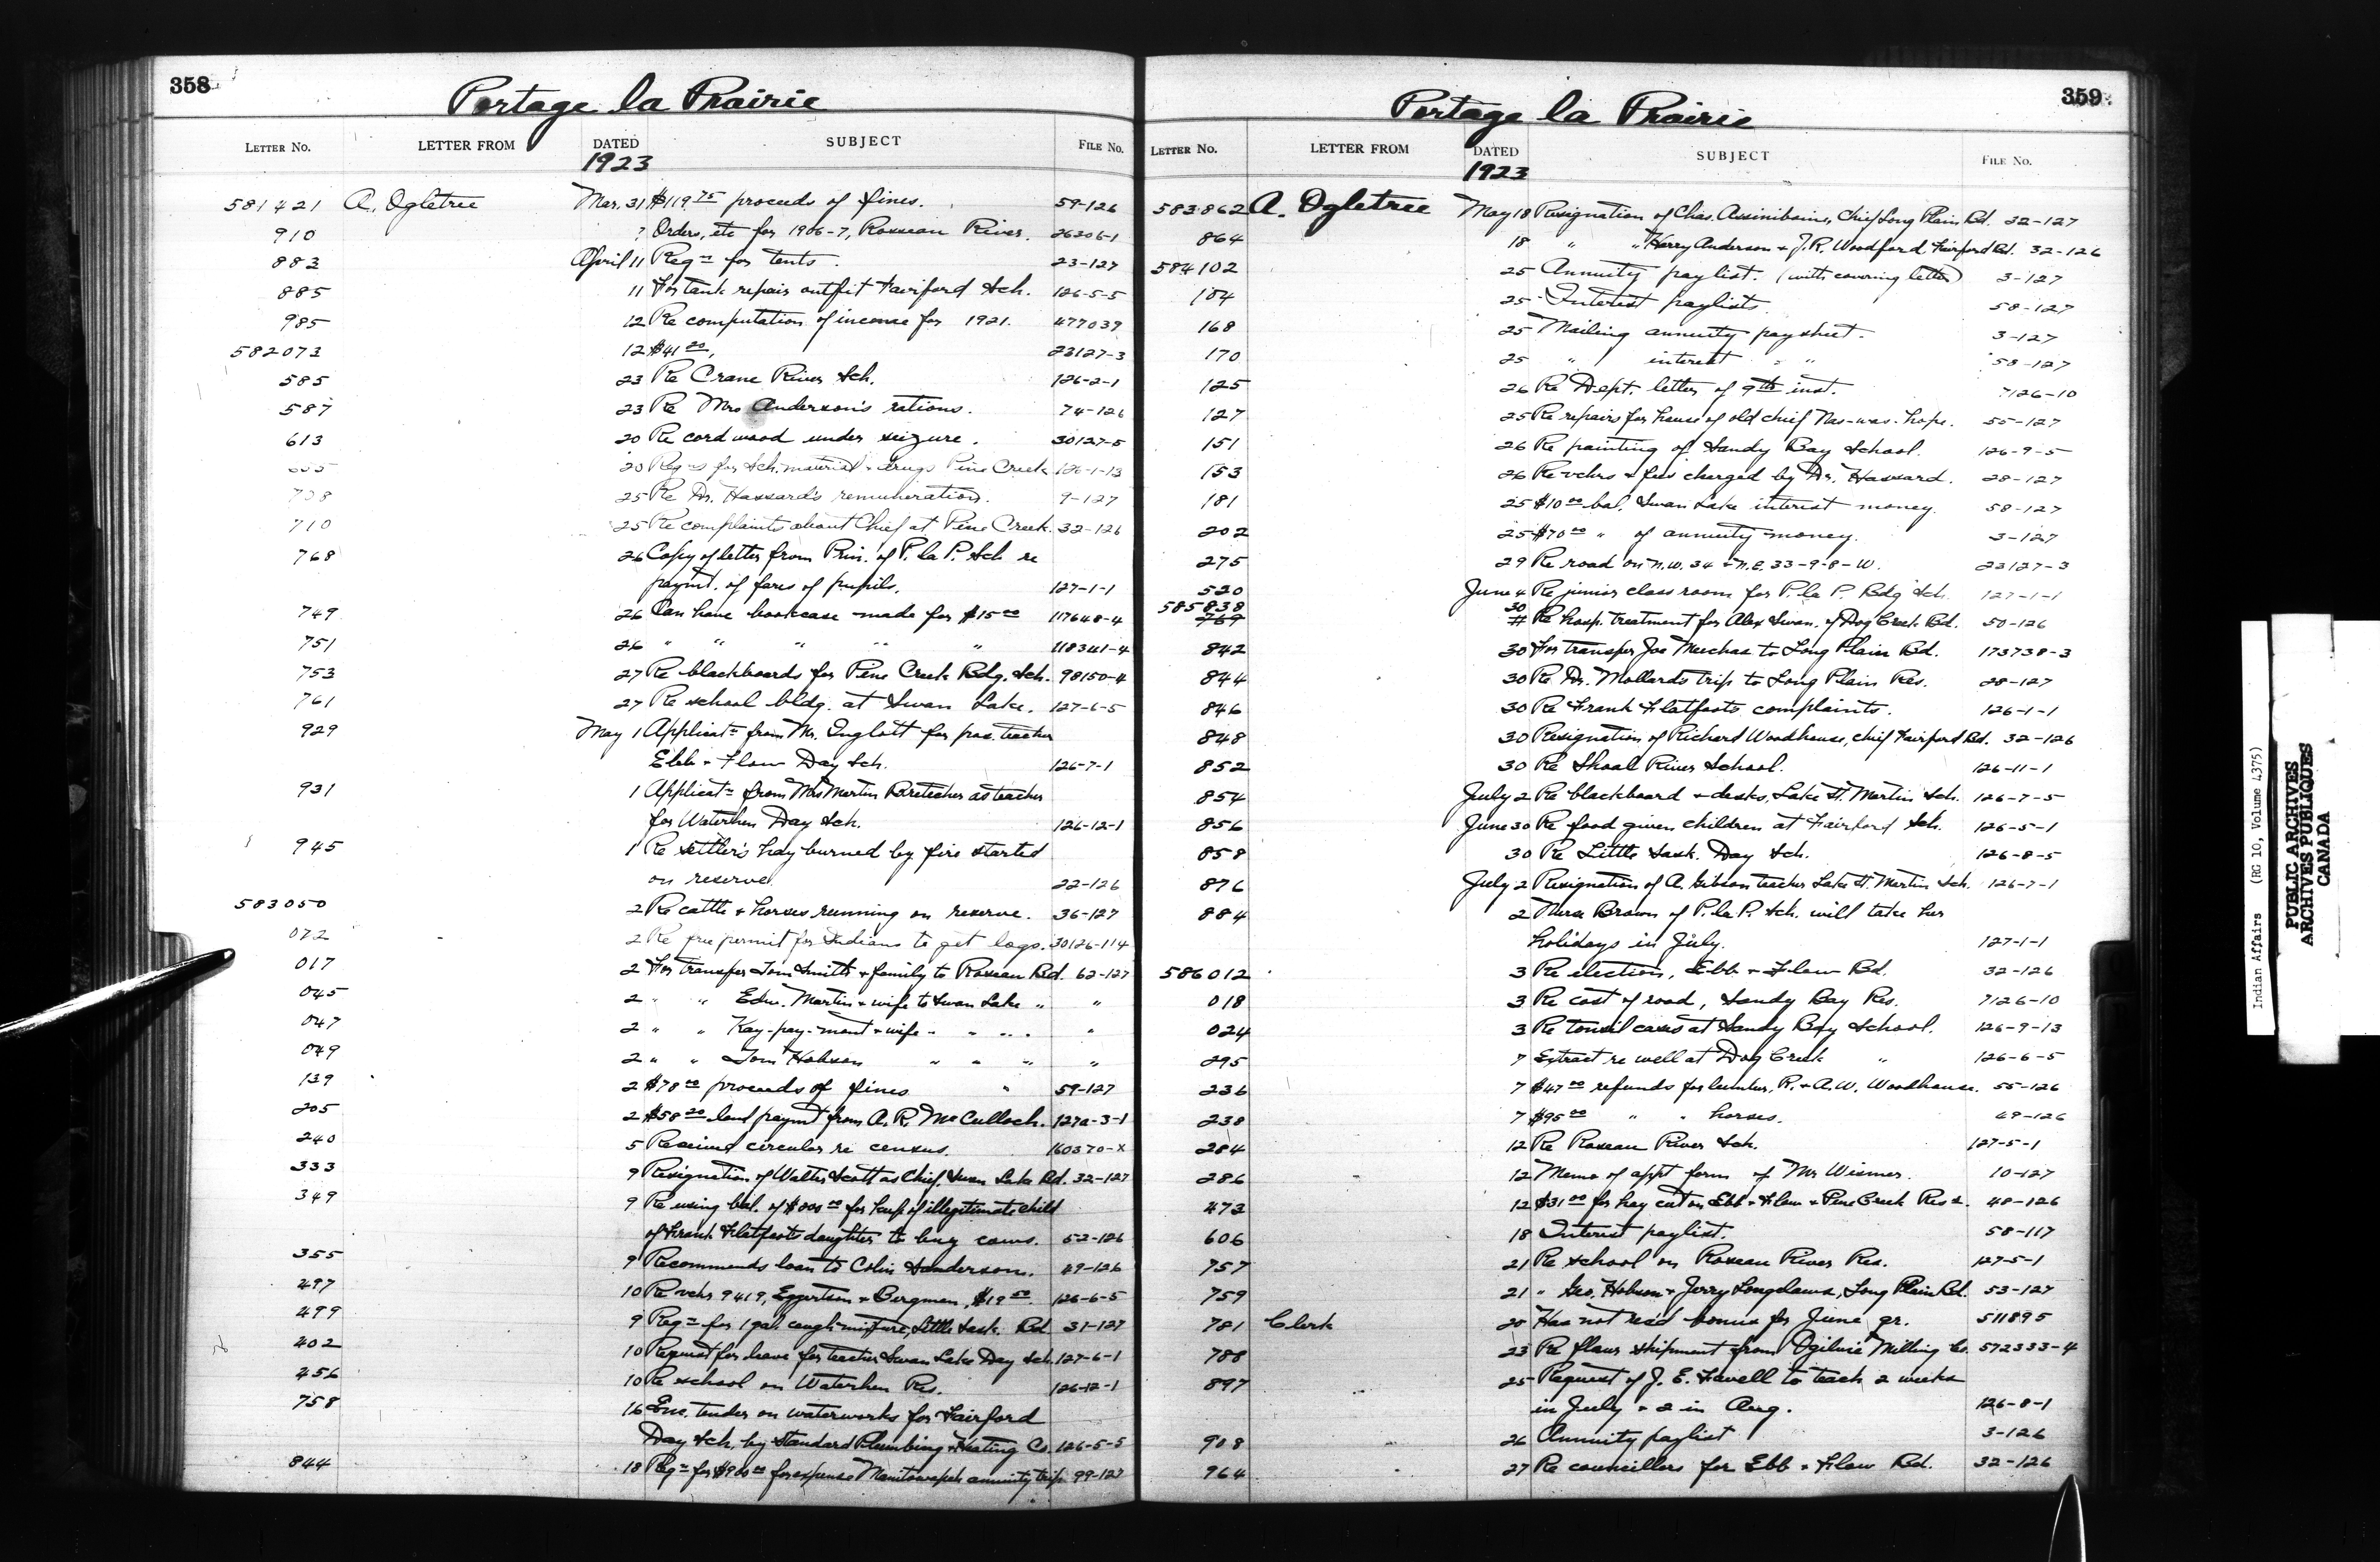 358
Portage la Prairie
LETTER No. LETTER FROM DATED SUBJECT FILE No.
1923
581421 A. Ogletree Mar. 31 $119.75 proceeds of fines. 59-126
910 ? Orders, etc for 1906-7, Roseau River. 26306-1
883 April 11 Reqn for tents. 23-127
885 11 For tank repair outfit Fairford Sch. 126-5-5
985 12 Re computation of income for 1921. 477039
582073 12 $41.20, 23127-3
585 23 Re Crane River Sch. 126-2-1
587 23 Re Mrs Anderson's rations. 74-126
613 20 Re cord wood under seizure. 30127-5
20 Reqns for Sch. material & drugs Pine Creek 126-1-13
708 25 Re Dr. Hassard's remuneration. 9-127
710 25 Re complaints about Chief at Pine Creek. 32-126
768 26 Copy of letter from Prin. of P. la P. Sch re
paymt. of fares of pupils. 127-1-1
749 26 Can have bookcase made for $15.00 117648-4
751 26 " " " " " 118341-4
753 27 Re blackboards for Pine Creek Bdg. Sch. 98150-4
761 27 Re school bldg. at Swan Lake. 127-6-5
929 May 1 Applicatn from Mr. Inglott for pos. teacher
Ebb & Flow Day Sch. 126-7-1
931 1 Applicatn from Mrs Martin as teacher
for Waterhen Day Sch. 126-12-1
945 1 Re settler's hay burned by fire started
on reserve. 22-126
583050 2 Re cattle & horses running on reserve. 36-127
072 2 Re free permit for Indians to get logs. 30126-114
017 2 For transfer Tom Smith & family to Roseau Bd. 62-127
045 2 " " Edw. Martin & wife to Swan Lake " "
047 2 " " Kay-pay-mont & wife " " " "
049 2 " " Tom Hobson " " " "
139 2 $78.00 proceeds of fines " 59-127
205 2 $58.20 land paymt from A. R. McCulloch. 127a-3-1
240 5 Received circular re census. 160370-X
333 9 Resignation of Walter Scott as Chief, Swan Lake Bd. 32-127
349 9 Re using bal. of for keep of illegitimate child
of Frank Flatfoots daughter to buy cows. 52-126
355 9 Recommends loan to Colin Sanderson. 49-126
497 10 Re vchr 9419, Eggertson & Bergman, $19.50. 126-6-5
499 9 Reqn for 1 gal. cough mixture, Little Sask. Bd 31-127
402 10 Request for leave for teacher Swan Lake Day Sch. 127-6-1
456 10 Re school on Waterhen Res. 126-12-1
758 16 Enc. tender on waterworks for Fairford
Day Sch. by Standard Plumbing & Heating Co. 126-5-5
844 18 Reqn for for expenses Manitowapah annuity trip. 99-127
359
Portage la Prairie
LETTER No. LETTER FROM DATED SUBJECT FILE No.
1923
583862 A. Ogletree May 18 Resignation of Chas. Assiniboine, Chief Long Plain Bd. 32-127
864 18 " " Harry Anderson & J. R. Woodford, Fairford Bd. 32-126
584102 25 Annuity paylist. (with covering letter) 3-127
104 25 Interest paylists. 58-127
168 25 Mailing annuity paysheet. 3-127
170 25 " interest " 58-127
125 26 Re Dept. letter of 9th inst. 7126-10
127 25 Re repairs for house of old chief Nas-was-hope. 55-127
151 26 Re painting of Sandy Bay School. 126-9-5
153 26 Re vchrs & fees charged by Dr. Hassard. 28-127
181 25 $10.00 bal. Swan Lake interest money. 58-127
202 25 $70.00 " of annuity money. 3-127
275 29 Re road on N.W. 34 & N.E. 33-9-8-W. 23127-3
520 June 4 Re junior class room for P. la P. Bdg Sch. 127-1-1
585838
769 30 Re hosp. treatment for Alex Swan, of Dog Creek Bd. 50-126
842 30 For transfer Joe Meechas to Long Plain Bd. 173738-3
844 30 Re Dr. Mollard's trip to Long Plain Res. 28-127
846 30 Re Frank Flatfoots complaints. 126-1-1
848 30 Resignation of Richard Woodhouse, chief Fairford Bd. 32-126
852 30 Re Shoal River School. 126-11-1
854 July 2 Re blackboard & desks, Lake St. Martin Sch. 126-7-5
856 June 30 Re food given children at Fairford Sch. 126-5-1
858 30 Re Little Sask. Day Sch. 126-8-5
876 July 2 Resignation of A. Gibson teacher Lake St. Martin Sch. 126-7-1
884 2 Nurse Brown of P. la P. Sch. will take her
holidays in July. 127-1-1
586012 3 Re election, Ebb & Flow Bd. 32-126
018 3 Re cost of road, Sandy Bay Res. 7126-10
024 3 Re tonsil cases at Sandy Bay School. 126-9-13
295 7 Extract re well at Dog Creek " 126-6-5
236 7 $47.00 refunds for lumber, R. & A. W. Woodhouse. 55-126
238 7 $95.00 " " horses. 49-126
284 12 Re Roseau River Sch. 127-5-1
286 12 Memo of appt form of Mr Wismer. 10-127
473 12 $31.00 for hay cut on Ebb & Flow & Pine Creek Res. 48-126
606 18 Interest paylist. 58-117
757 21 Re school on Roseau River Res. 127-5-1
759 21 " Geo. Hobson & Jerry Longclaws, Long Plain Bd. 53-127
781 Clerk 20 Has not rec'd bonus for June qr. 511895
788 23 Re flour shipment from Ogilvie Milling Co. 572333-4
897 25 Request of J. E. Favell to teach 2 weeks
in July & 2 in Aug. 126-8-1
908 26 Annuity paylist 3-126
964 27 Re councillors for Ebb & Flow Bd. 32-126
Indian Affairs (RG 10, Volume 4375)
PUBLIC ARCHIVES
ARCHIVES PUBLIQUES
CANADA